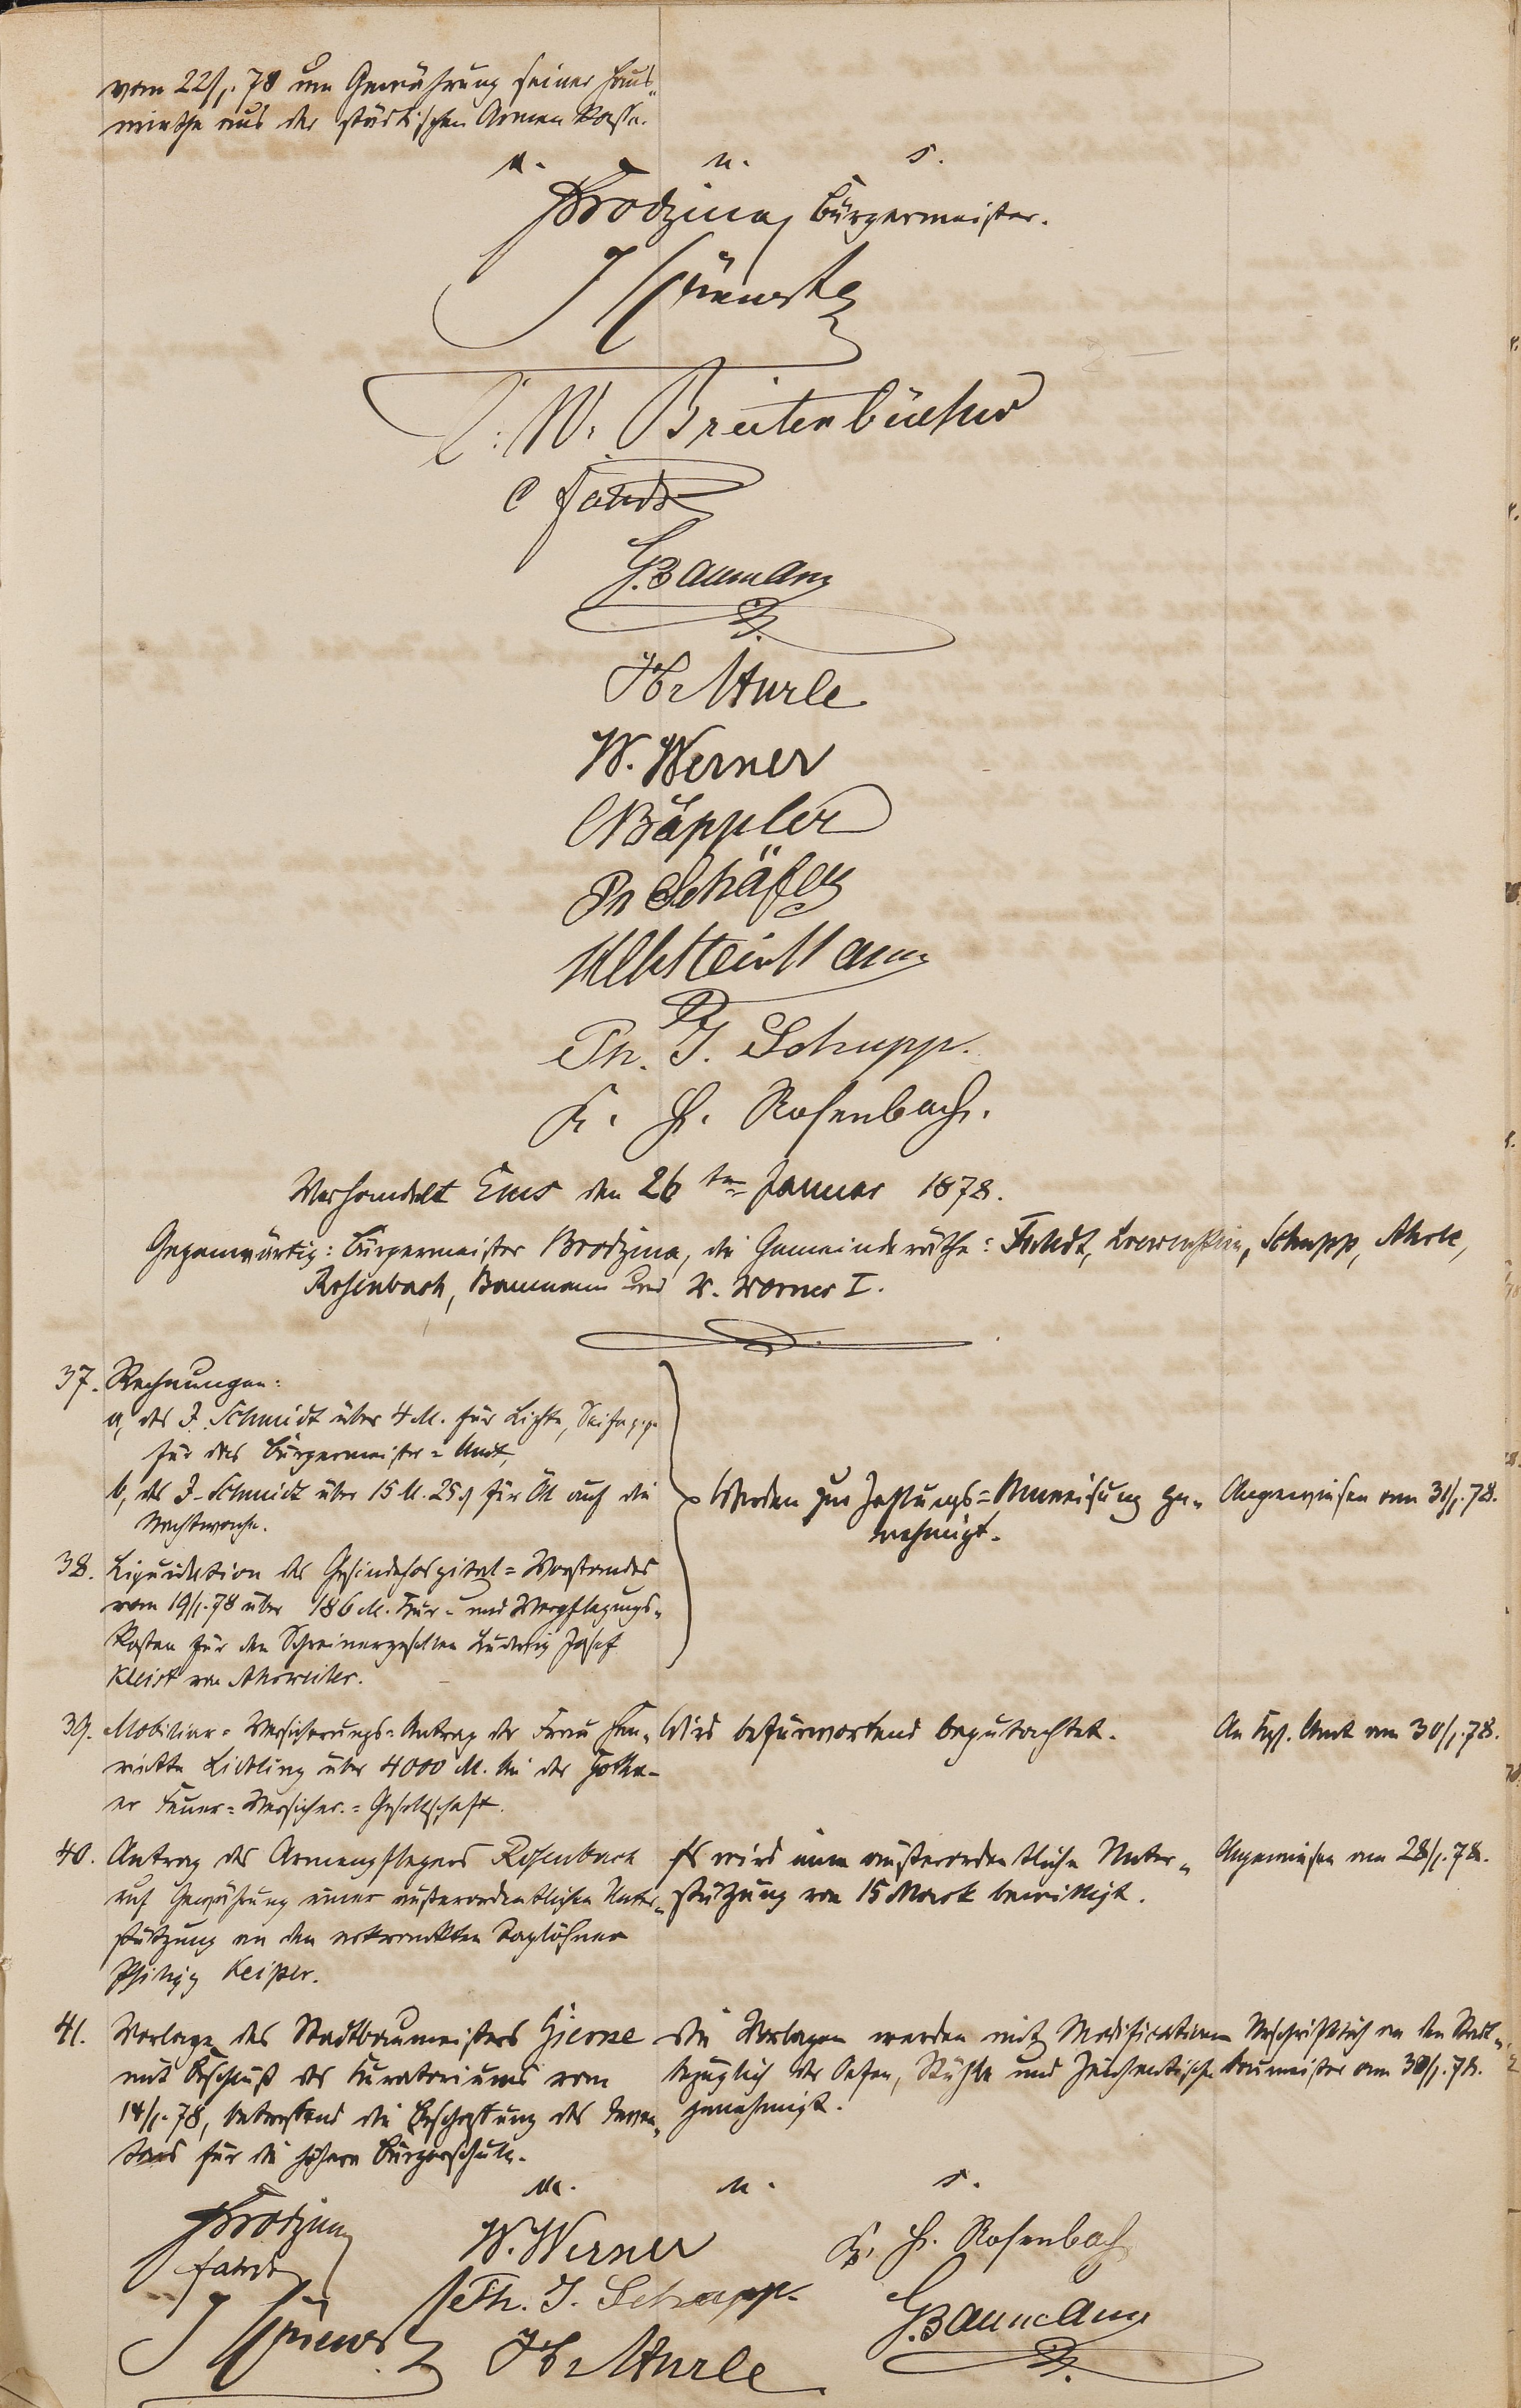 vom 22/1.78 um Gewährung seiner Haus-
miethe aus der städtischen Armen Kasse.
v. u. s.
Brodzina, Bürgermeister.
W. Breitenbücher
C Fahdt
G. Baumann
W. Werner
Bäppler
Ph Schäfer
Ph. J. Schupp.
K. H. Rosenbach.
Verhandelt Ems den 26ten Januar 1878.
Gegenwärtig: Bürgermeister Brodzina, die Gemeinderäthe: Fahdt, Loewenstein, Schupp,
Rosenbach, Baumann und W. Werner I.
37. Rechnungen:
a, des J. Schmidt über 4 M. für Lichte, Seife pp
für das Bürgermeister=Amt,
b, des J. Schmidt über 15 M. 25 ₰ für Öl auf die
Nachtwache.
Werden zur Zahlungs=Anweisung ge-
nehmigt.
Angewiesen am 31/1.78.
38. Liquidation des Gesindehospital=Vorstandes
vom 19/1.78 über 186 M. Kur- und Verpflegungs-
kosten für den Schreinergesellen Ludwig Josef
Kleist von Ahrweiler.
39. Mobiliar=Versicherungs=Antrag der Frau Hen-
riette Liebling über 4000 M. bei der Gotha-
er Feuer=Versicher.=Gesellschaft.
Wird befürwortend begutachtet.
An Kgl. Amt am 30/1.78.
40. Antrag des Armenpflegers Rosenbach
auf Gewährung einer außerordentlichen Unter-
stützung an den erkrankten Taglöhner
Philipp Keiper.
Es wird eine außerordentliche Unter-
stützung von 15 Mark bewilligt.
Angewiesen am 28/1.78.
41. Vorlage des Stadtbaumeisters
mit Beschluß des Kuratoriums vom
14/1.78, betreffend die Beschaffung des Inven-
tars für die höhere Bürgerschule.
Die Vorlagen werden mit Modificationen
bezüglich der Oefen, Stühle und Zeichentische
genehmigt.
Urschriftlich an den Stadt-
baumeister am 30/1.78.
v. u. s.
Brodzina
Fahdt
W. Werner
Ph. J. Schupp.
K. H. Rosenbach
G. Baumann